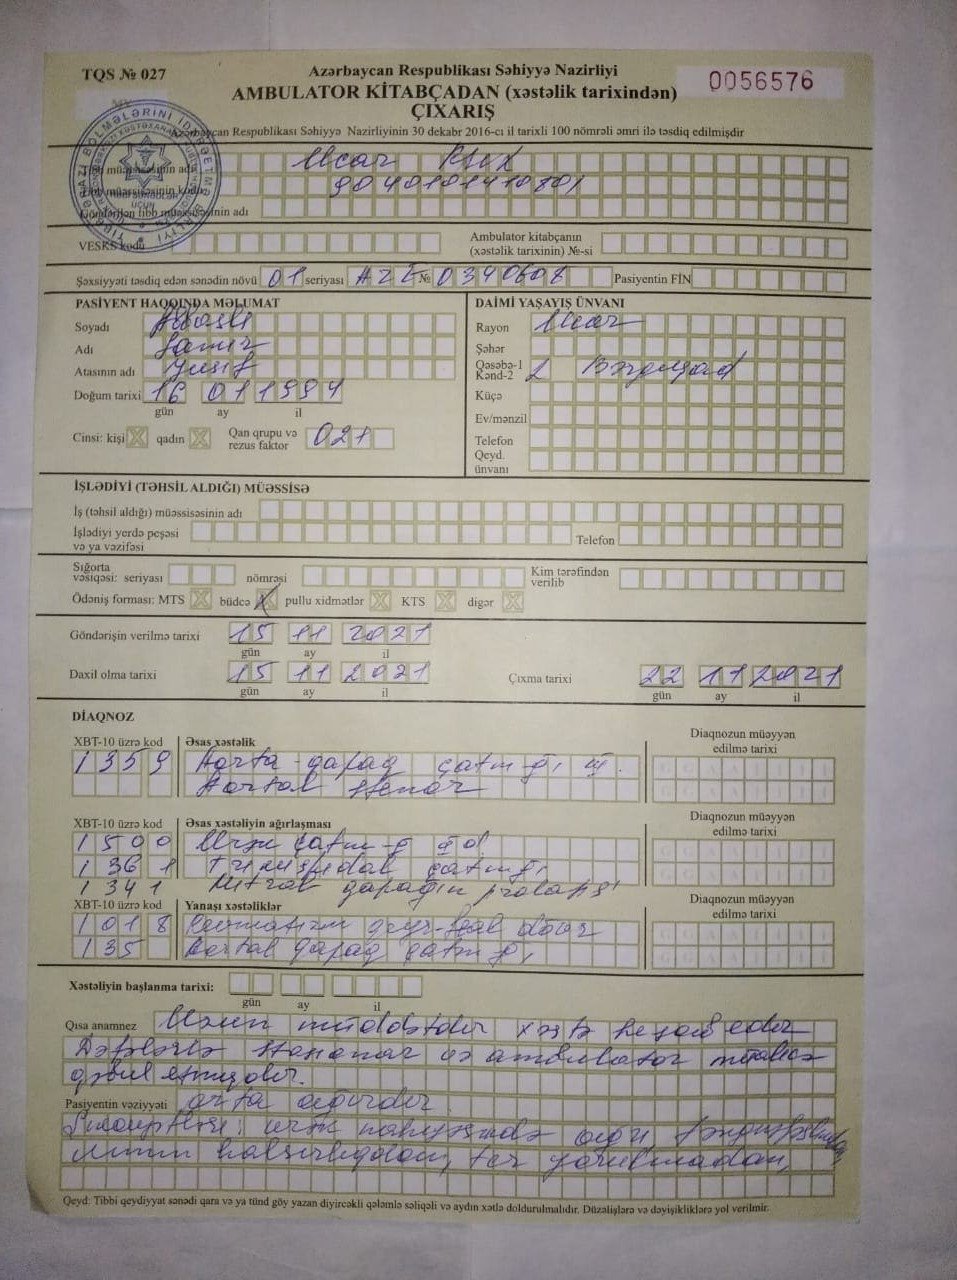 TQS № 027
Azərbaycan Respublikası Səhiyyə Nazirliyi
0056576
AMBULATOR KİTABÇADAN (xəstəlik tarixindən)
ÇIXARIŞ
Azərbaycan Respublikası Səhiyyə Nazirliyinin 30 dekabr 2016-cı il tarixli 100 nömrəli əmri ilə təsdiq edilmişdir
müəssisəsinin adı Ucar
müəssisəsinin kodu
Göndərilən tibb müəssisəsinin adı
VESKS kodu
Ambulator kitabçanın
(xəstəlik tarixinin) №-si
Şəxsiyyəti təsdiq edən sənədin növü 01 seriyası AZE № 0340608 Pasiyentin FİN
PASİYENT HAQQINDA MƏLUMAT
Soyadı
Adı Samir
Atasının adı Yusif
Doğum tarixi 16 01 1994
gün ay il
Cinsi: kişi X qadın X Qan qrupu və
rezus faktor
DAİMİ YAŞAYIŞ ÜNVANI
Rayon Ucar
Şəhər
Qəsəbə-1
Kənd-2 2 Bərguşad
Küçə
Ev/mənzil
Telefon
Qeyd.
ünvanı
İŞLƏDİYİ (TƏHSİL ALDIĞI) MÜƏSSİSƏ
İş (təhsil aldığı) müəssisəsinin adı
İşlədiyi yerdə peşəsi
və ya vəzifəsi
Telefon
Sığorta
vəsiqəsi: seriyası nömrəsi
Kim tərəfindən
verilib
Ödəniş forması: MTS X büdcə X pullu xidmətlər X KTS X digər X
Göndərişin verilmə tarixi 15 11 2021
gün ay il
Daxil olma tarixi 15 11 2021 Çıxma tarixi 22 11 2021
gün ay il gün ay il
DİAQNOZ
XBT-10 üzrə kod Əsas xəstəlik Diaqnozun müəyyən
edilmə tarixi
I359 Aorta qapaq çatm-ğı III.
Aortal stenoz
XBT-10 üzrə kod Əsas xəstəliyin ağırlaşması Diaqnozun müəyyən
edilmə tarixi
I500 Ürək çatm-ğ
I361 Trikuspidal çatmğı
I341 Mitral qapağın prolapsı
XBT-10 üzrə kod Yanaşı xəstəliklər Diaqnozun müəyyən
edilmə tarixi
I018 Revmatizm qeyr-fəal dövr
I35 Aortal qapaq çatm-ğı
Xəstəliyin başlanma tarixi:
gün ay il
Qısa anamnez Uzun müddətdir xəstə hesab edir
Dəfələrlə stasionar və ambulator müalicə
qəbul etmişdir.
Pasiyentin vəziyyəti orta ağırdır
Şikayətləri: ürək nahiyəsində ağrı,
ümumi halsızlıqdan, tez yorulmadan,
Qeyd: Tibbi qeydiyyat sənədi qara və ya tünd göy yazan diyircəkli qələmlə səliqəli və aydın xətlə doldurulmalıdır. Düzəlişlərə və dəyişikliklərə yol verilmir.